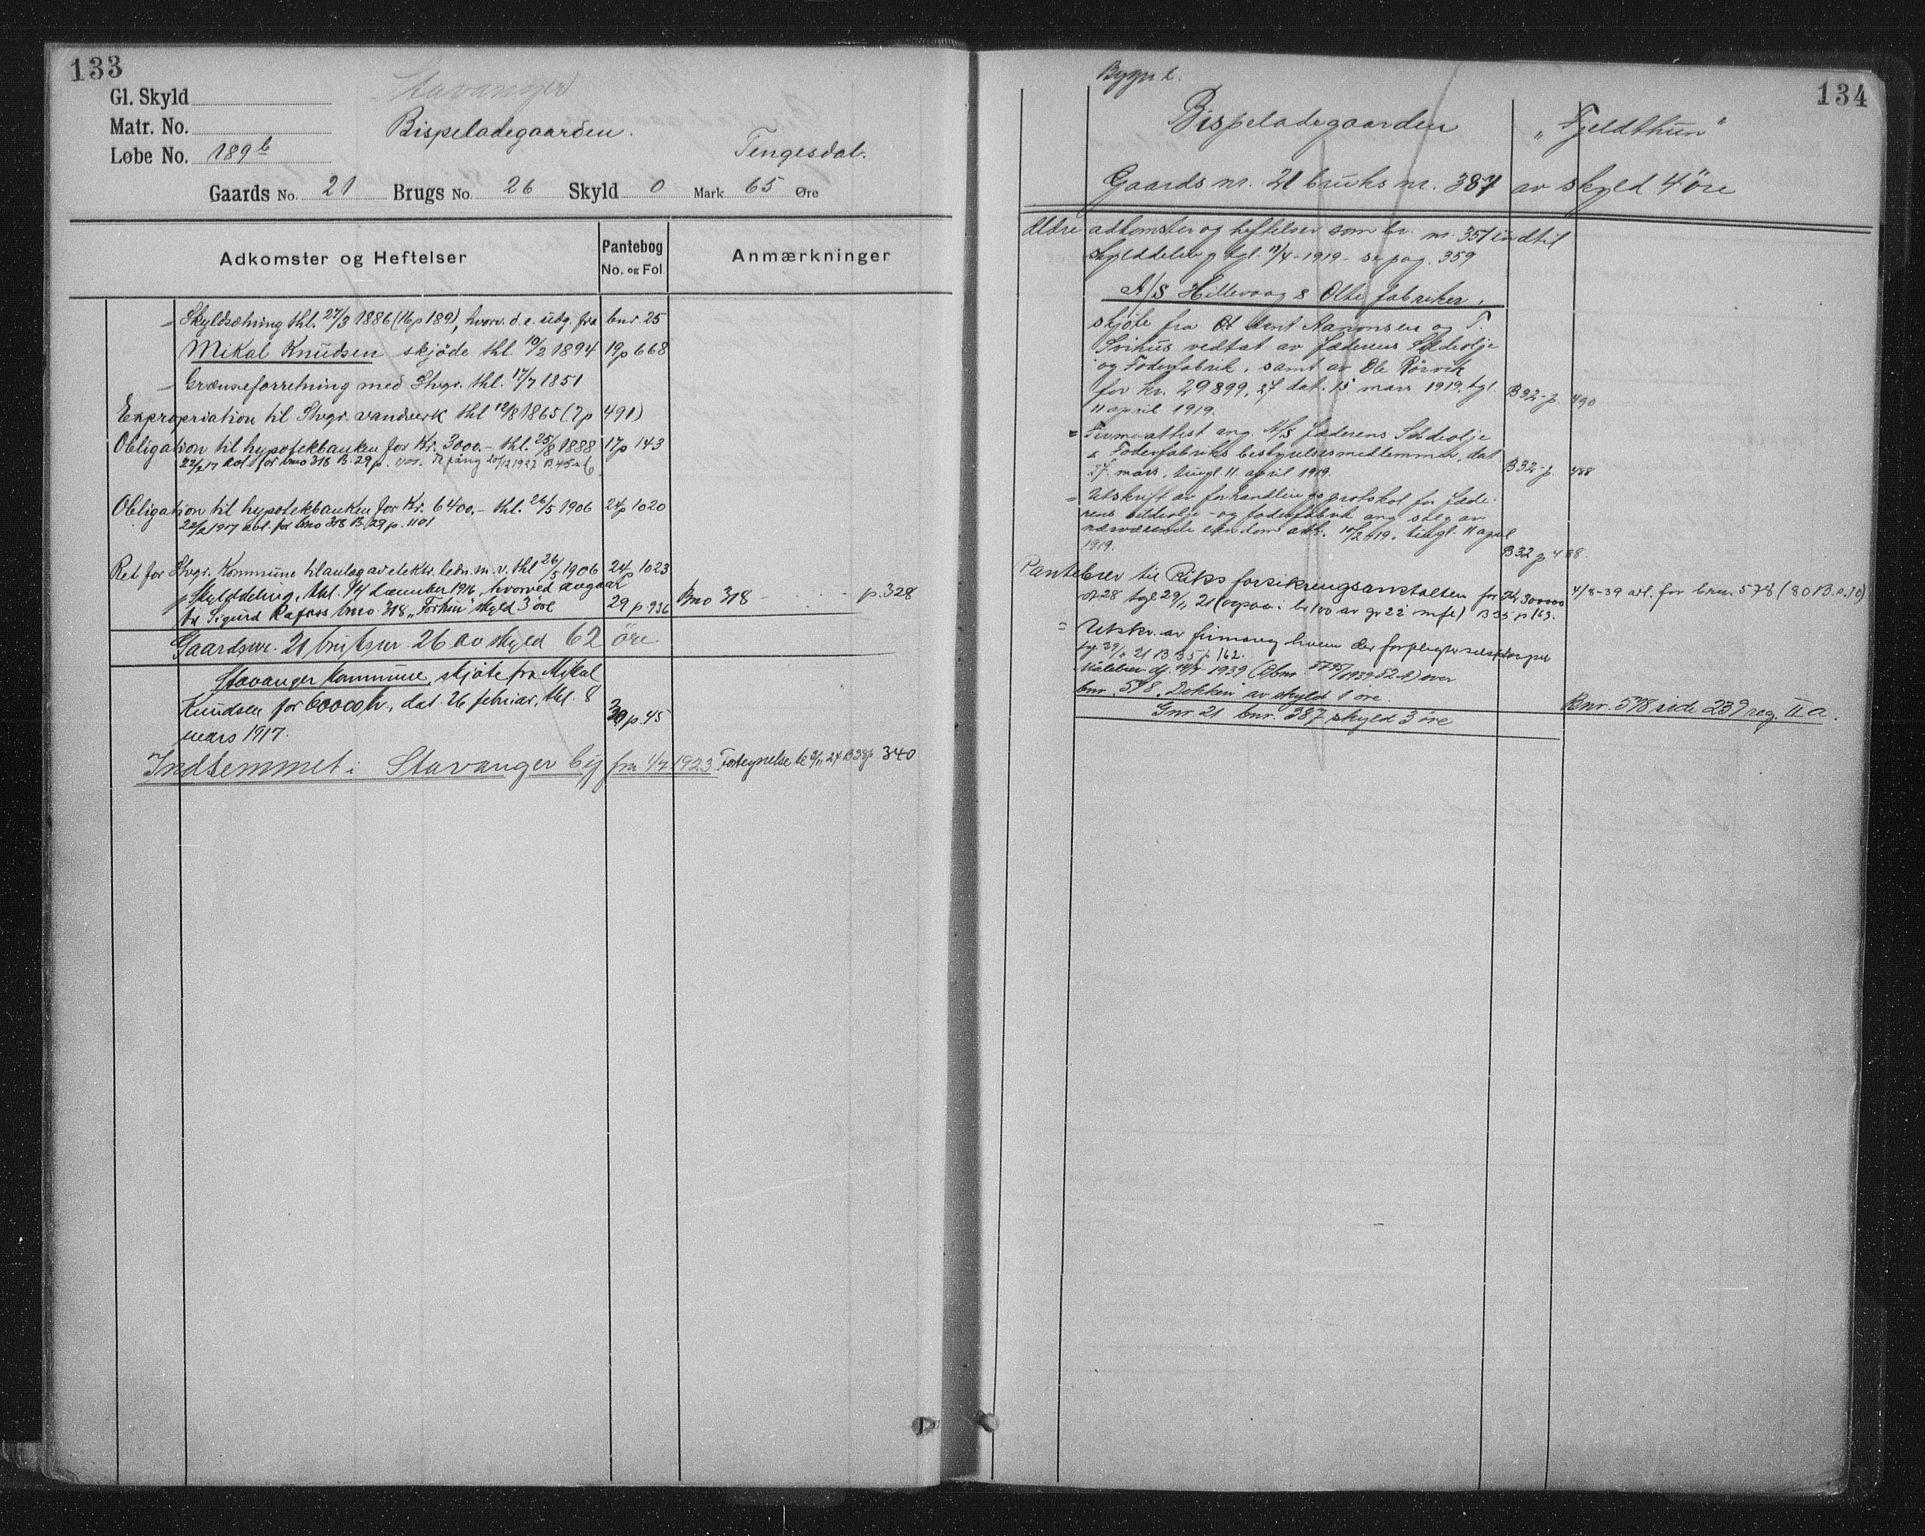 133
Stavanger
Gl. Skyld
Matr. No.
Bispeladegaarden.
Løbe No. 189 b
Tengesdal.
Gaards No. 21 Brugs No. 26 Skyld 0 Mark 65 Øre
Adkomster og Heftelser
Pantebog
No. og Fol.
Anmærkninger
Skyldsætning thl. 27/3 1886 (16 p 189), hvorv. d. e. udg. fra bnr. 25
Mikal Knudsen skjøde thl 10/2 1894 19 p 668
Grænseforretning med Stvgr. thl. 17/7 1851
Expropriation til Stvgr. vandverk thl 12/8 1865 (7 p 491)
Obligation til hypotekbanken for Kr. 3000,- thl. 25/8 1888 17 p 143
22/2 17 for bno 318 B. 29 p. 1101.
Obligation til hypotekbanken for Kr. 6400,- thl. 26/5 1906 24 p 1020
22/2 1917 for bno 318 B. 29 p. 1101
Ret for Stvgr. Kommune til anlæg av elektr. ledn. m. v. thl 26/5 1906 24 p 1023
Skylddeling, thl. december 1916, hvorved avgaar
til Sigurd Rafoss bno 318, skyld 3 øre 29 p. 936 Bno 318 - p. 328
Gaardsnr. 21 bruksnr 26 av skyld 62 øre
Stavanger kommune, skjøte fra Mikal
Knudsen for 60000 kr., dat. 26 februar, thl. 8
mars 1917. 30 p. 45
Indlemmet i Stavanger by fra 1/7 1923. 24 B 38 p 340
134
Bispeladegaarden "Fjeldthun"
Gaards nr. 21 bruks nr. 387 av skyld 4 øre
Ældre adkomster og heftelser som br. nr. 351 indtil
skylddeling tgl. 11/4 - 1919 - se pag. 359
A/S Hillevaag's Olie fabriker.
skjøte fra Arnt Aanonsen og T.
Svihus vedtat av Jæderens Sildeolje
og Foderfabrik, samt av Ole Rørvik
for kr. 29899,27 dat. 15 mars 1919, tgl.
11 april 1919. B 32 - p. 490
= Firmaattest ang. A/S Jæderens Sildeolje
& Foderfabriks bestyrelsesmedlemmer, dat
27. mars, tingl. 11. april 1919. B 32 - p 488
= Utskrift av forhandlingsprotokol for Jæde-
rens sildeolje- og foderfabrik ang salg av
nærværende eiendom 10/2 1919, tingl. 11 april
1919. B 32 p 488.
Pantebrev til Riksforsikringsanstalten for Kr 300000 4/8-39 avl. for bnr. 578 (80 B. p. 10)
tgl 29/11 21 (ogsaa i br 100 av gr 22 mfl) B 35 p 163.
= Utskr. av firmareg hvem der forpligter selskapet
tgl 29/11 21 B 35 p 162.
1939 over
bnr. 578, av skyld 1 øre. Bnr. 578 side 239 reg. II a.
Gnr 21 bnr. 387 skyld 3 øre